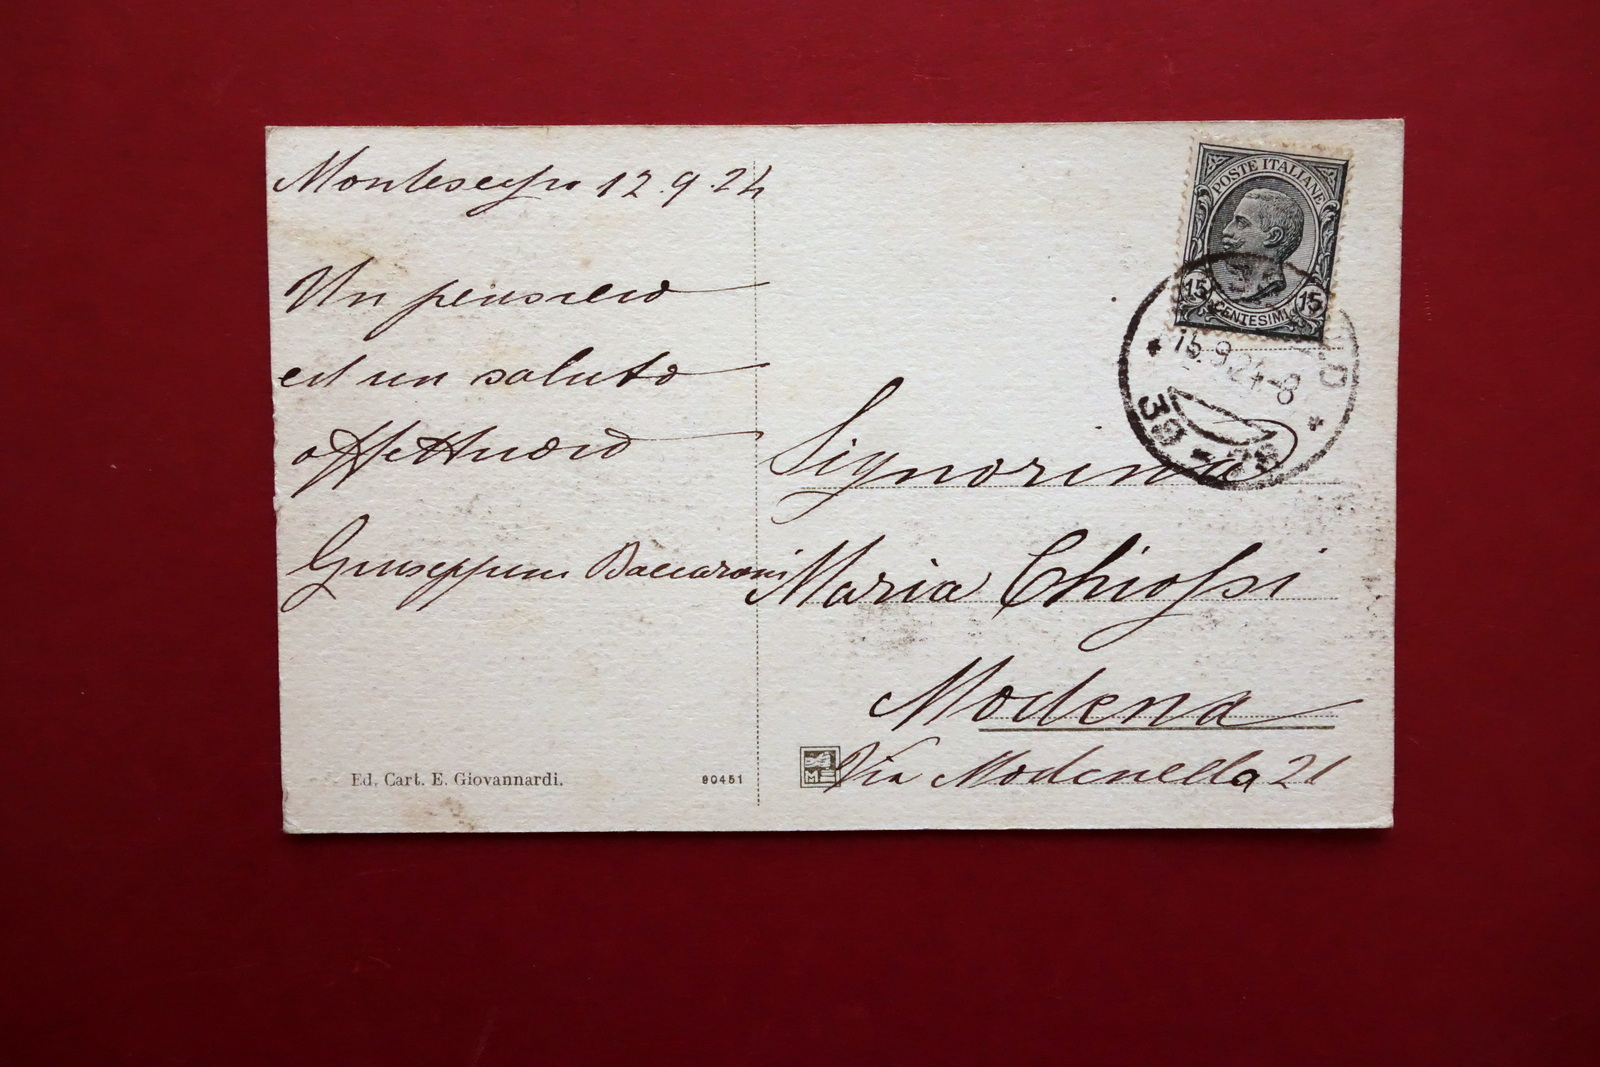 Montesecgno 12.9.24
Un pensiero
ed un saluto
affettuoso
Giuseppina Baccaroni
POSTE ITALIANE
15 CENTESIMI 15
13.9.24-8
Signorina
Maria Chiossi
Modena
Via Modenella 21
Ed. Cart. E. Giovannardi.
90451